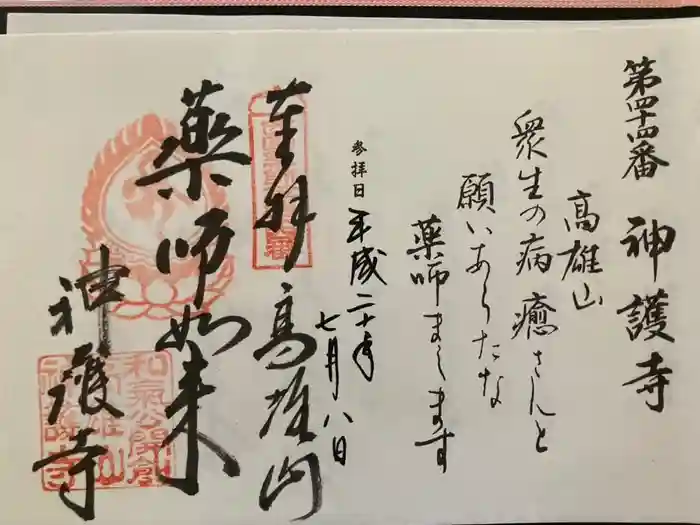 第四十四番 神護寺
高雄山
衆生の病 癒さんと
願いあらたな
薬師まします
参拝日 平成二十年
七月八日
奉拝 高雄山
薬師如来
神護寺
和氣公開創
高雄山
神護寺